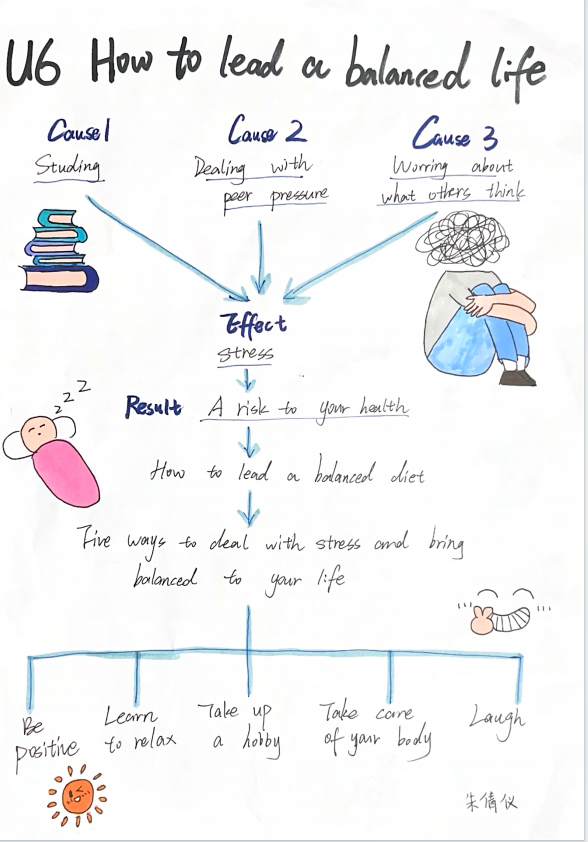 U6 How to lead a balanced life
Cause 1
Studing
Cause 2
Dealing with
peer pressure
Cause 3
Worring about
what others think
Effect
stress
Result A risk to your health
How to lead a balanced diet
Five ways to deal with stress and bring
balanced to your life
Be
positive
Learn
to relax
Take up
a hobby
Take care
of your body
Laugh
z z Z
朱倩仪